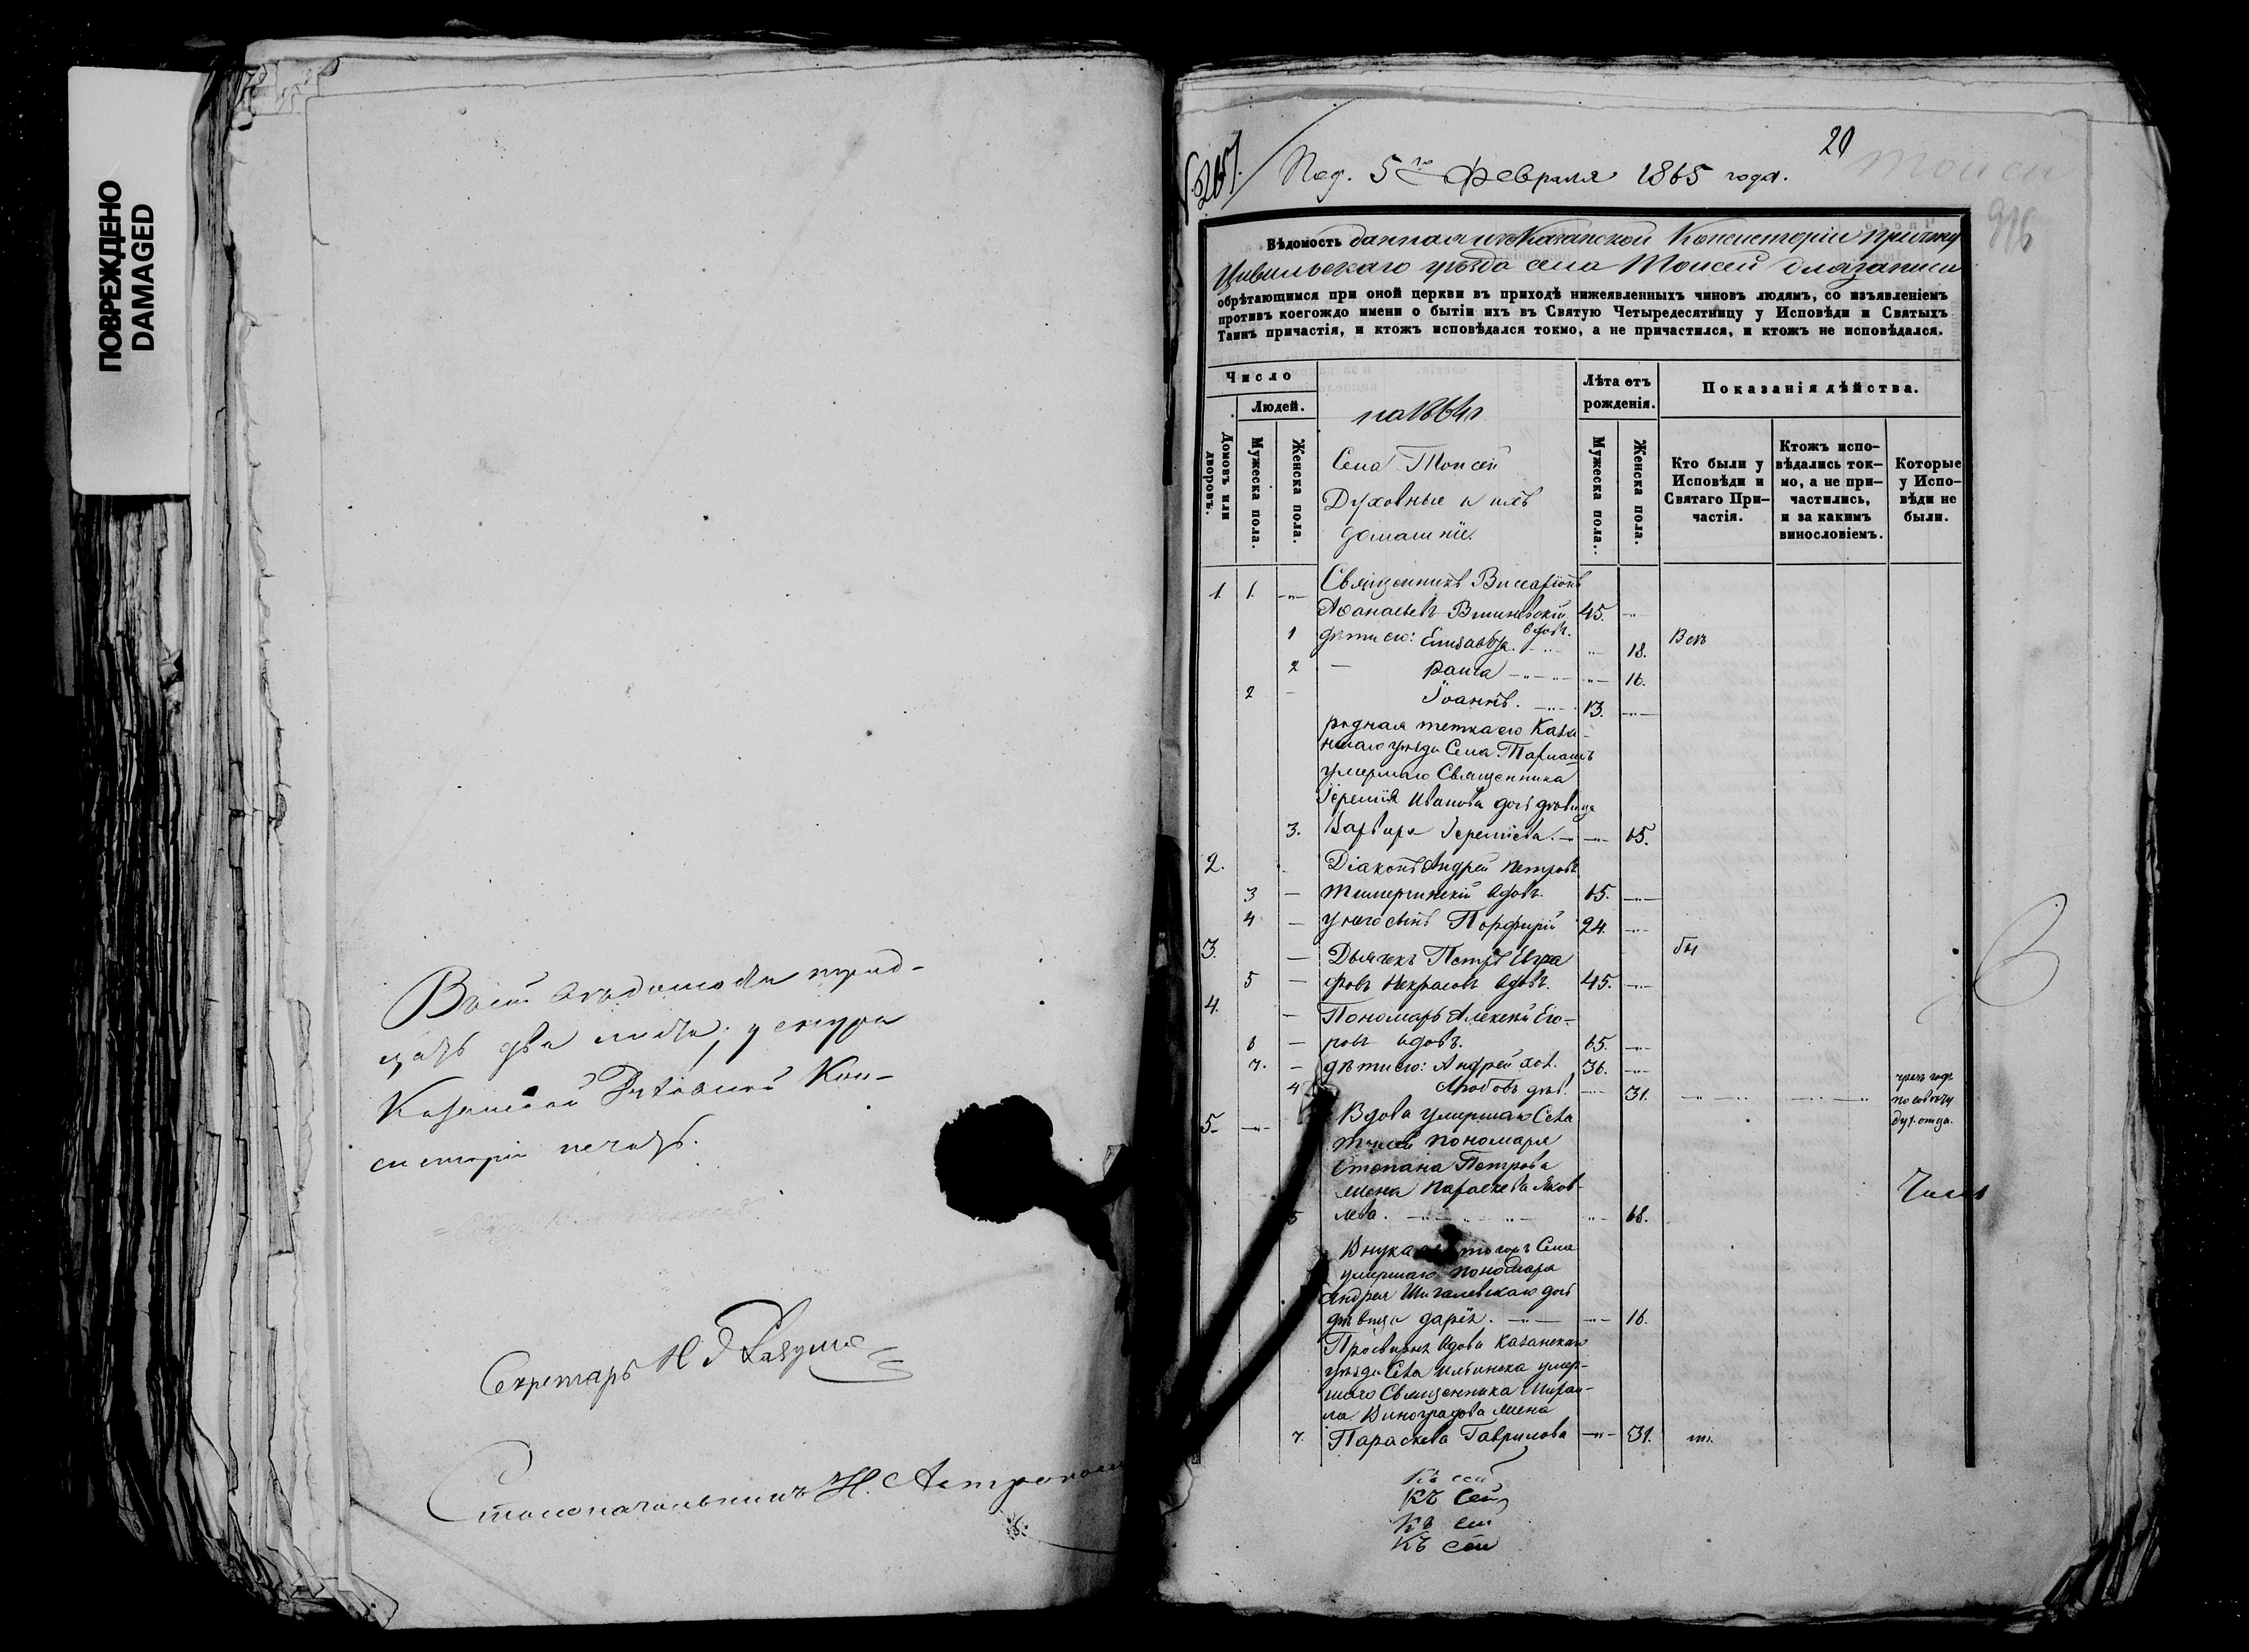 ПОВРЕЖДЕНО
DAMAGED
Въ сей ведомости трид-
цать два листа; у снура
Казанской Духовной Кон-
систоріи печать.
Секретарь
Столоначальникъ Н.
20
Под. 5го Февраля 1865 года.
Вѣдомость данная изъ Казанской Консисторіи причту
Цивильскаго уѣзда села Тоисей для записи
обрѣтающимся при оной церкви въ приходѣ нижеявленныхъ чиновъ людямъ, со изъявленіемъ
противъ коегождо имени о бытіи ихъ въ Святую Четыредесятницу у Исповѣди и Святыхъ
Таинъ причастія, и ктожъ исповѣдался токмо, а не причастился, и ктожъ не исповѣдался.
Число
Людей.
Домовъ или дворовъ.
Мужеска пола.
Женска пола.
на 1864 г
Села Тоисей
Духовные и ихъ
домашніе.
Лѣта отъ рожденія.
Мужеска пола.
Женска пола.
Показанія дѣйства.
Кто были у Исповѣди и Святаго При-частія.
Ктожъ испо-вѣдались ток-мо, а не при-частились, и за какимъ винословіемъ.
Которые у Испо-вѣди не были.
1. 1. Священникъ Виссаріонъ
Аѳанасьевъ Вишневскій 45.
вдовъ.
1 дѣти его: Елизавета. 18. Всѣ
2 Раиса 16.
2 Іоаннъ. 13.
родная тетка его Каза-
нскаго уѣзда Села
умершаго Священника
Іереміи Иванова дочь дѣвица
3. Варвара Іереміева. 65.
2. Діаконъ Андрей Петровъ
3 вдовъ. 65.
4 у него сынъ Порфирій 24.
3. Дьячекъ Петръ Евгра бы
5 фовъ Некрасовъ вдовъ. 45.
4. Пономарь Алексѣй Его-
6 ровъ вдовъ. 65.
7. дѣти его: Андрей хол. 36.
4 Любовь дѣв. 31.
чрезъ годъ
по совѣту
дух. отца.
5. Вдова умершаго Села
Тоисей пономаря
Степана Петрова
жена Параскева Яков-
5 лева. 68.
Внука тогожъ Села
умершаго пономаря
Андрея Шигалевскаго дочь
дѣвица Дарія. 16.
Просвирня вдова Казанскаго
уѣзда Села Ильинска умер-
шаго Священника Михаи-
ла Виноградова жена
7. Параскева Гаврилова 31. ли.
Къ сей
Къ сей
Къ сей
Къ сей